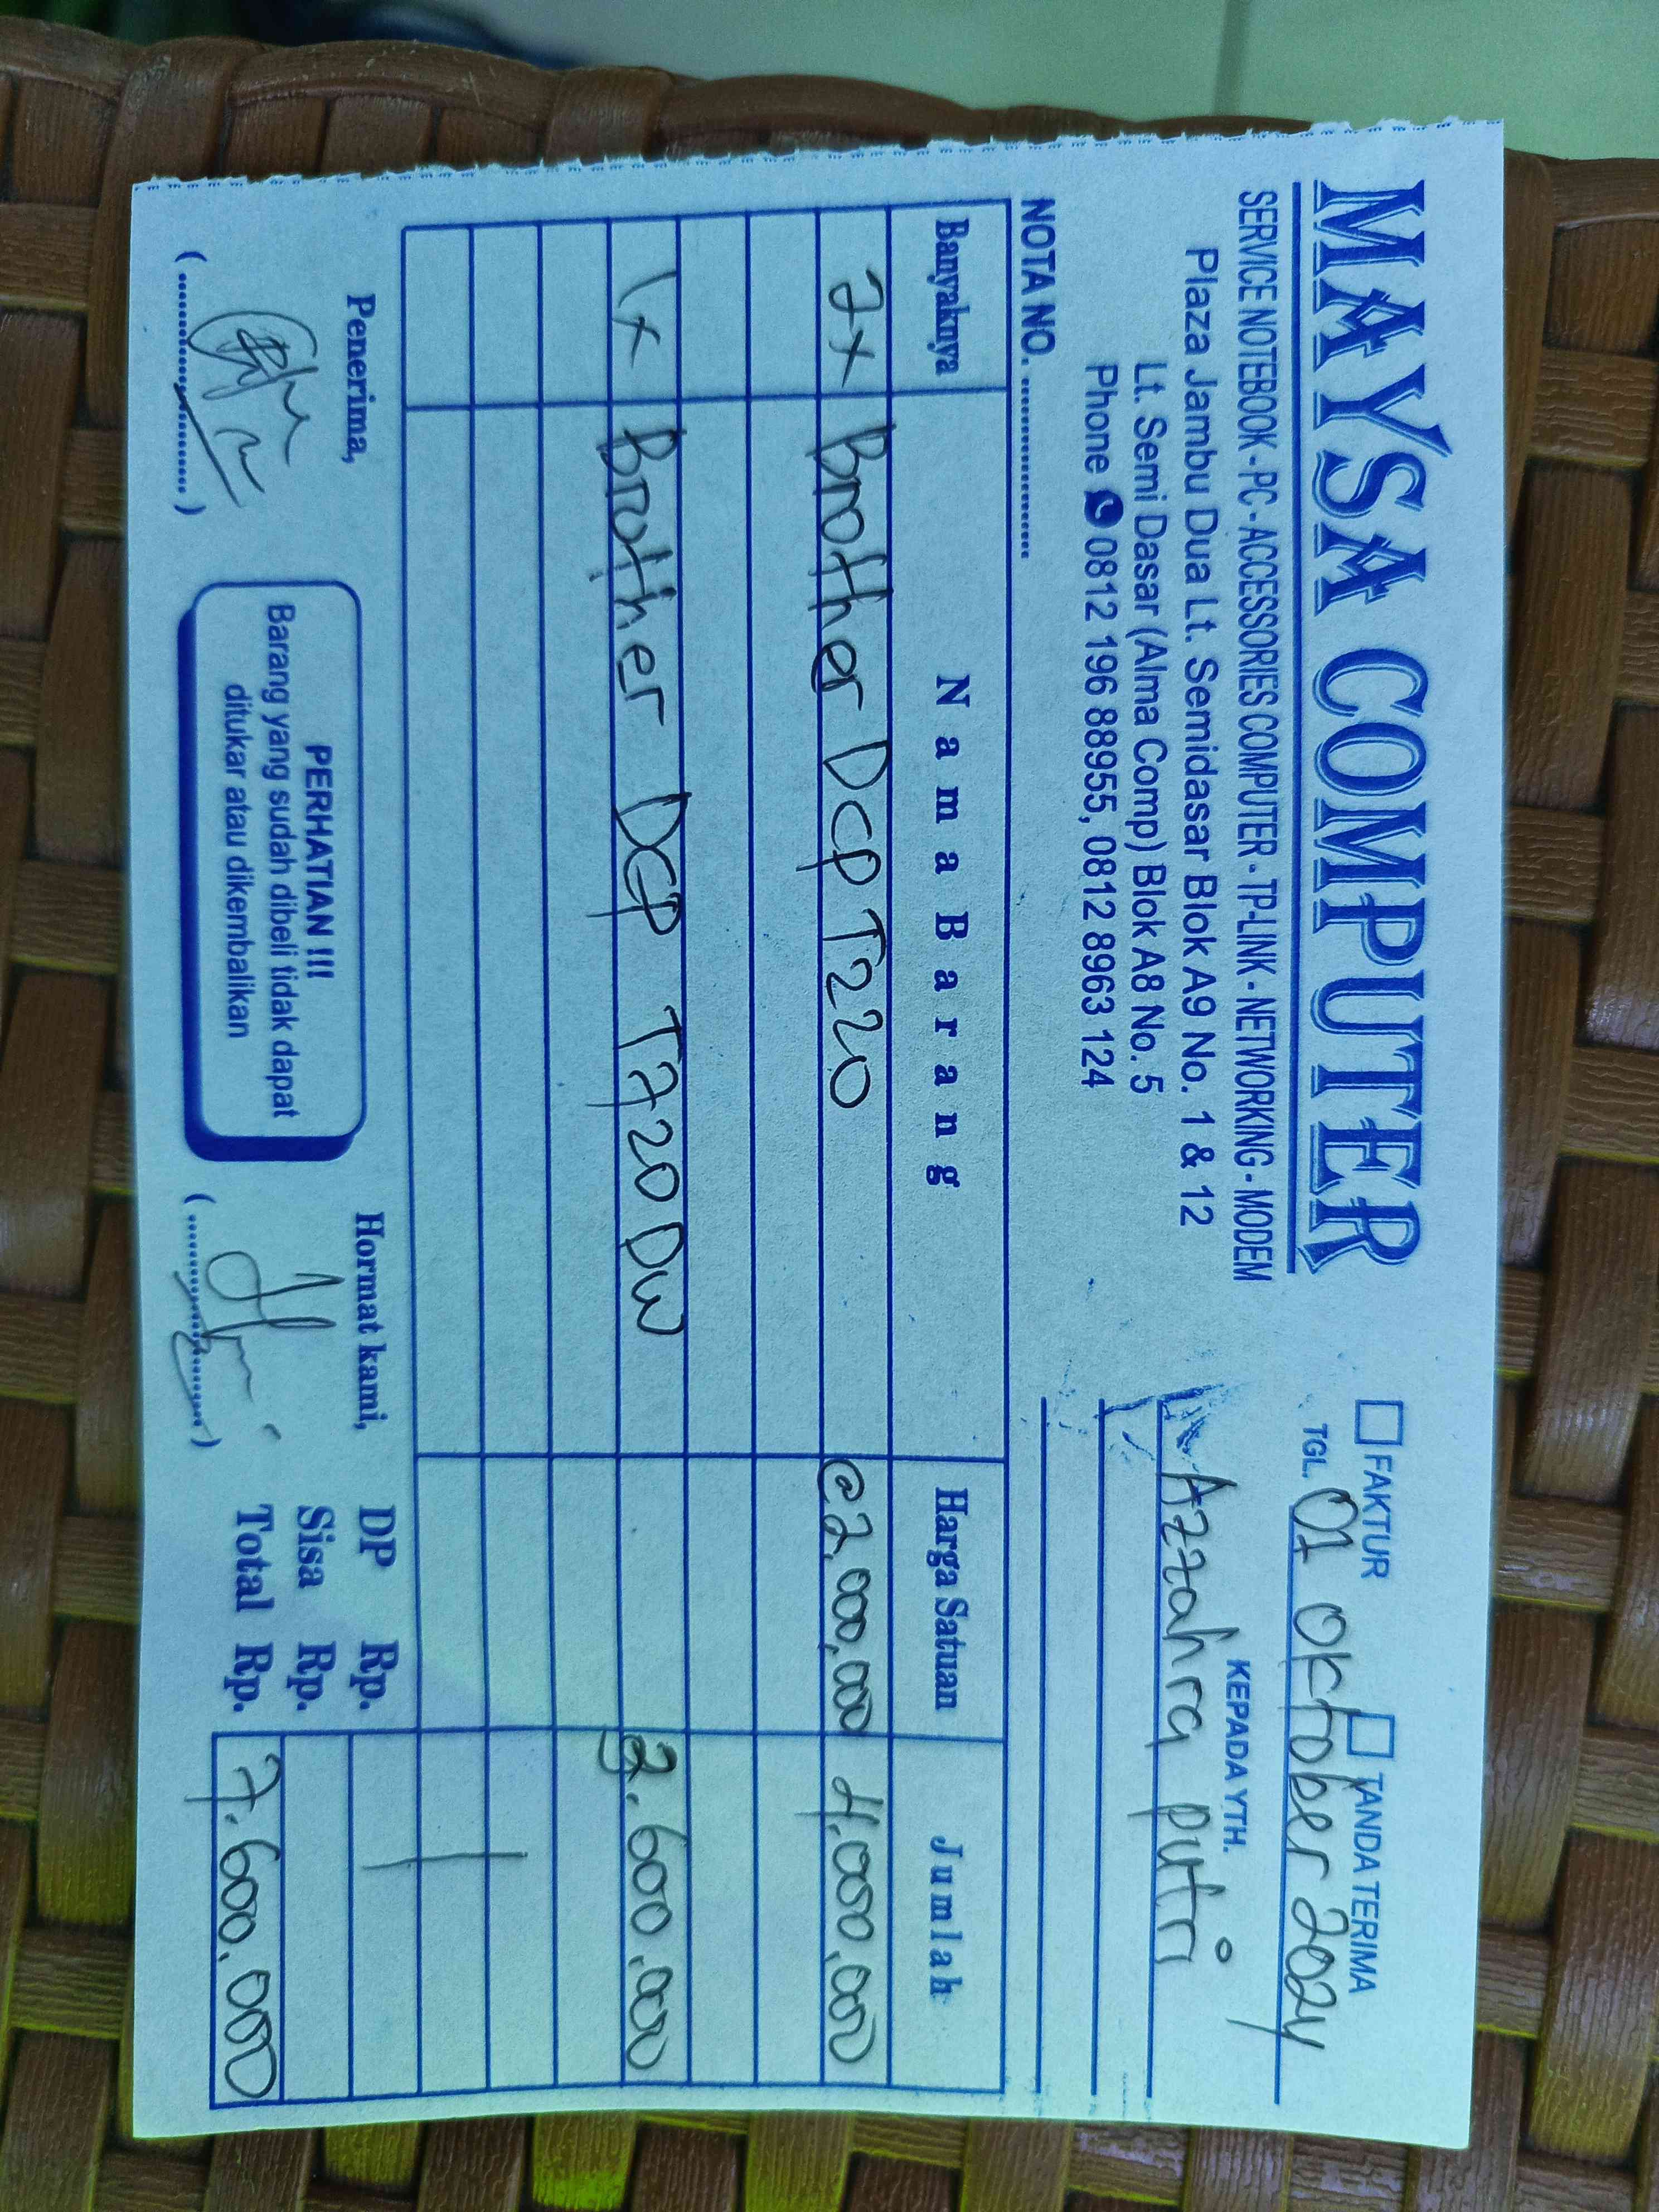 MAYSA COMPUTER
SERVICE NOTEBOOK - PC - ACCESSORIES COMPUTER - TP-LINK - NETWORKING - MODEM
Plaza Jambu Dua Lt. Semidasar Blok A9 No. 1 & 12
Lt. Semi Dasar (Alma Comp) Blok A8 No. 5
Phone 0812 196 88955, 0812 8963 124
FAKTUR TANDA TERIMA
TGL. 01 Oktober 2024
KEPADA YTH.
Azzahra putri
NOTA NO. ....................
Banyaknya Nama Barang Harga Satuan Jumlah
2x Brother DCP T220 @2.000.000 4.000.000
1x Brother DCP T720 DW 3.600.000
Penerima,
Hormat kami,
PERHATIAN !!!
Barang yang sudah dibeli tidak dapat
ditukar atau dikembalikan
DP Rp.
Sisa Rp.
Total Rp. 7.600.000